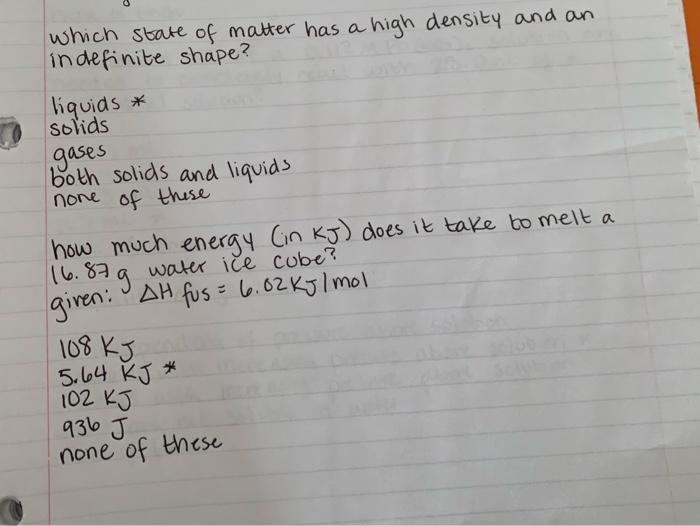 which state of matter has a high density and an
indefinite shape?
liquids *
solids
gases
both solids and liquids
none of these
how much energy (in KJ) does it take to melt a
16.87 g water ice cube?
given: ΔH fus = 6.02 KJ/mol
108 KJ
5.64 KJ *
102 KJ
936 J
none of these